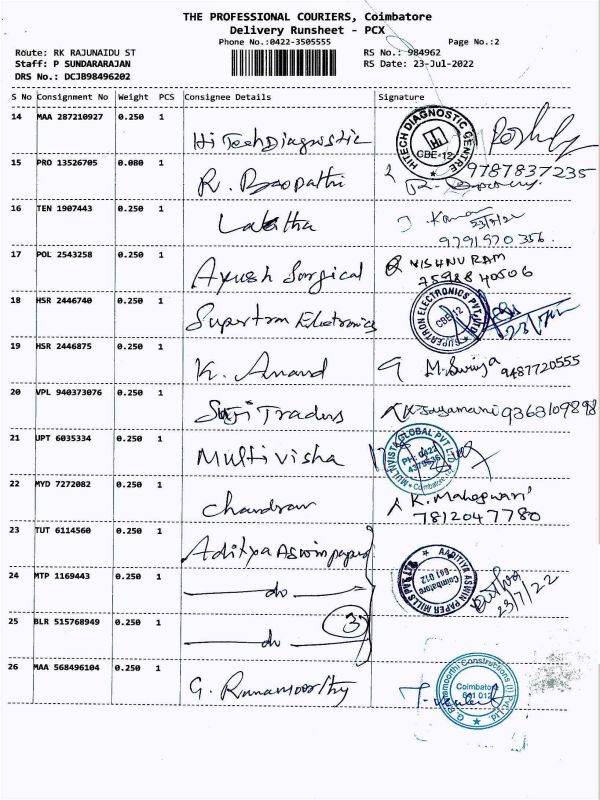 THE PROFESSIONAL COURIERS, Coimbatore
Delivery Runsheet - PCX
Phone No.:0422-3505555
Page No.:2
Route: RK RAJUNAIDU ST
RS No.: 984962
Staff: P SUNDARARAJAN
RS Date: 23-Jul-2022
DRS No.: DCJB98496202
S No Consignment No Weight PCS Consignee Details Signature
14 MAA 287210927 0.250 1 Hi Tech Diagnostic
HITECH DIAGNOSTIC CENTRE
CBE-12
15 PRO 13526705 0.080 1 R. Boopathi
9787837235
16 TEN 1907443 0.250 1 Lalitha
23/7/22
9791570356
17 POL 2543258 0.250 1 Ayush Surgical
VISHNU RAM
75988 40506
18 HSR 2446740 0.250 1 Supertron Electronics
SUPERTRON ELECTRONICS PVT. LTD
CBE-12
23/7/22
19 HSR 2446875 0.250 1 K. Anand
9487720555
20 VPL 940373076 0.250 1 Traders
Jayamani 9363109898
21 UPT 6035334 0.250 1 Multivisha
MULTIVISTA GLOBAL PVT
PH: 0422
Coimbatore
22 MYD 7272082 0.250 1 Chandran
K. Maheswari
7812047780
23 TUT 6114560 0.250 1 Aditya Aswin paper
24 MTP 1169443 0.250 1 do
AADITIYA ASWIN PAPER MILLS PVT LTD
Coimbatore
641 012
23/7/22
25 BLR 515768949 0.250 1 do
3
26 MAA 568496104 0.250 1 G. Ramamoorthy
G. Ramamoorthi Constructions (I) Pvt. Ltd.
Coimbatore
641 012
T. Venkat